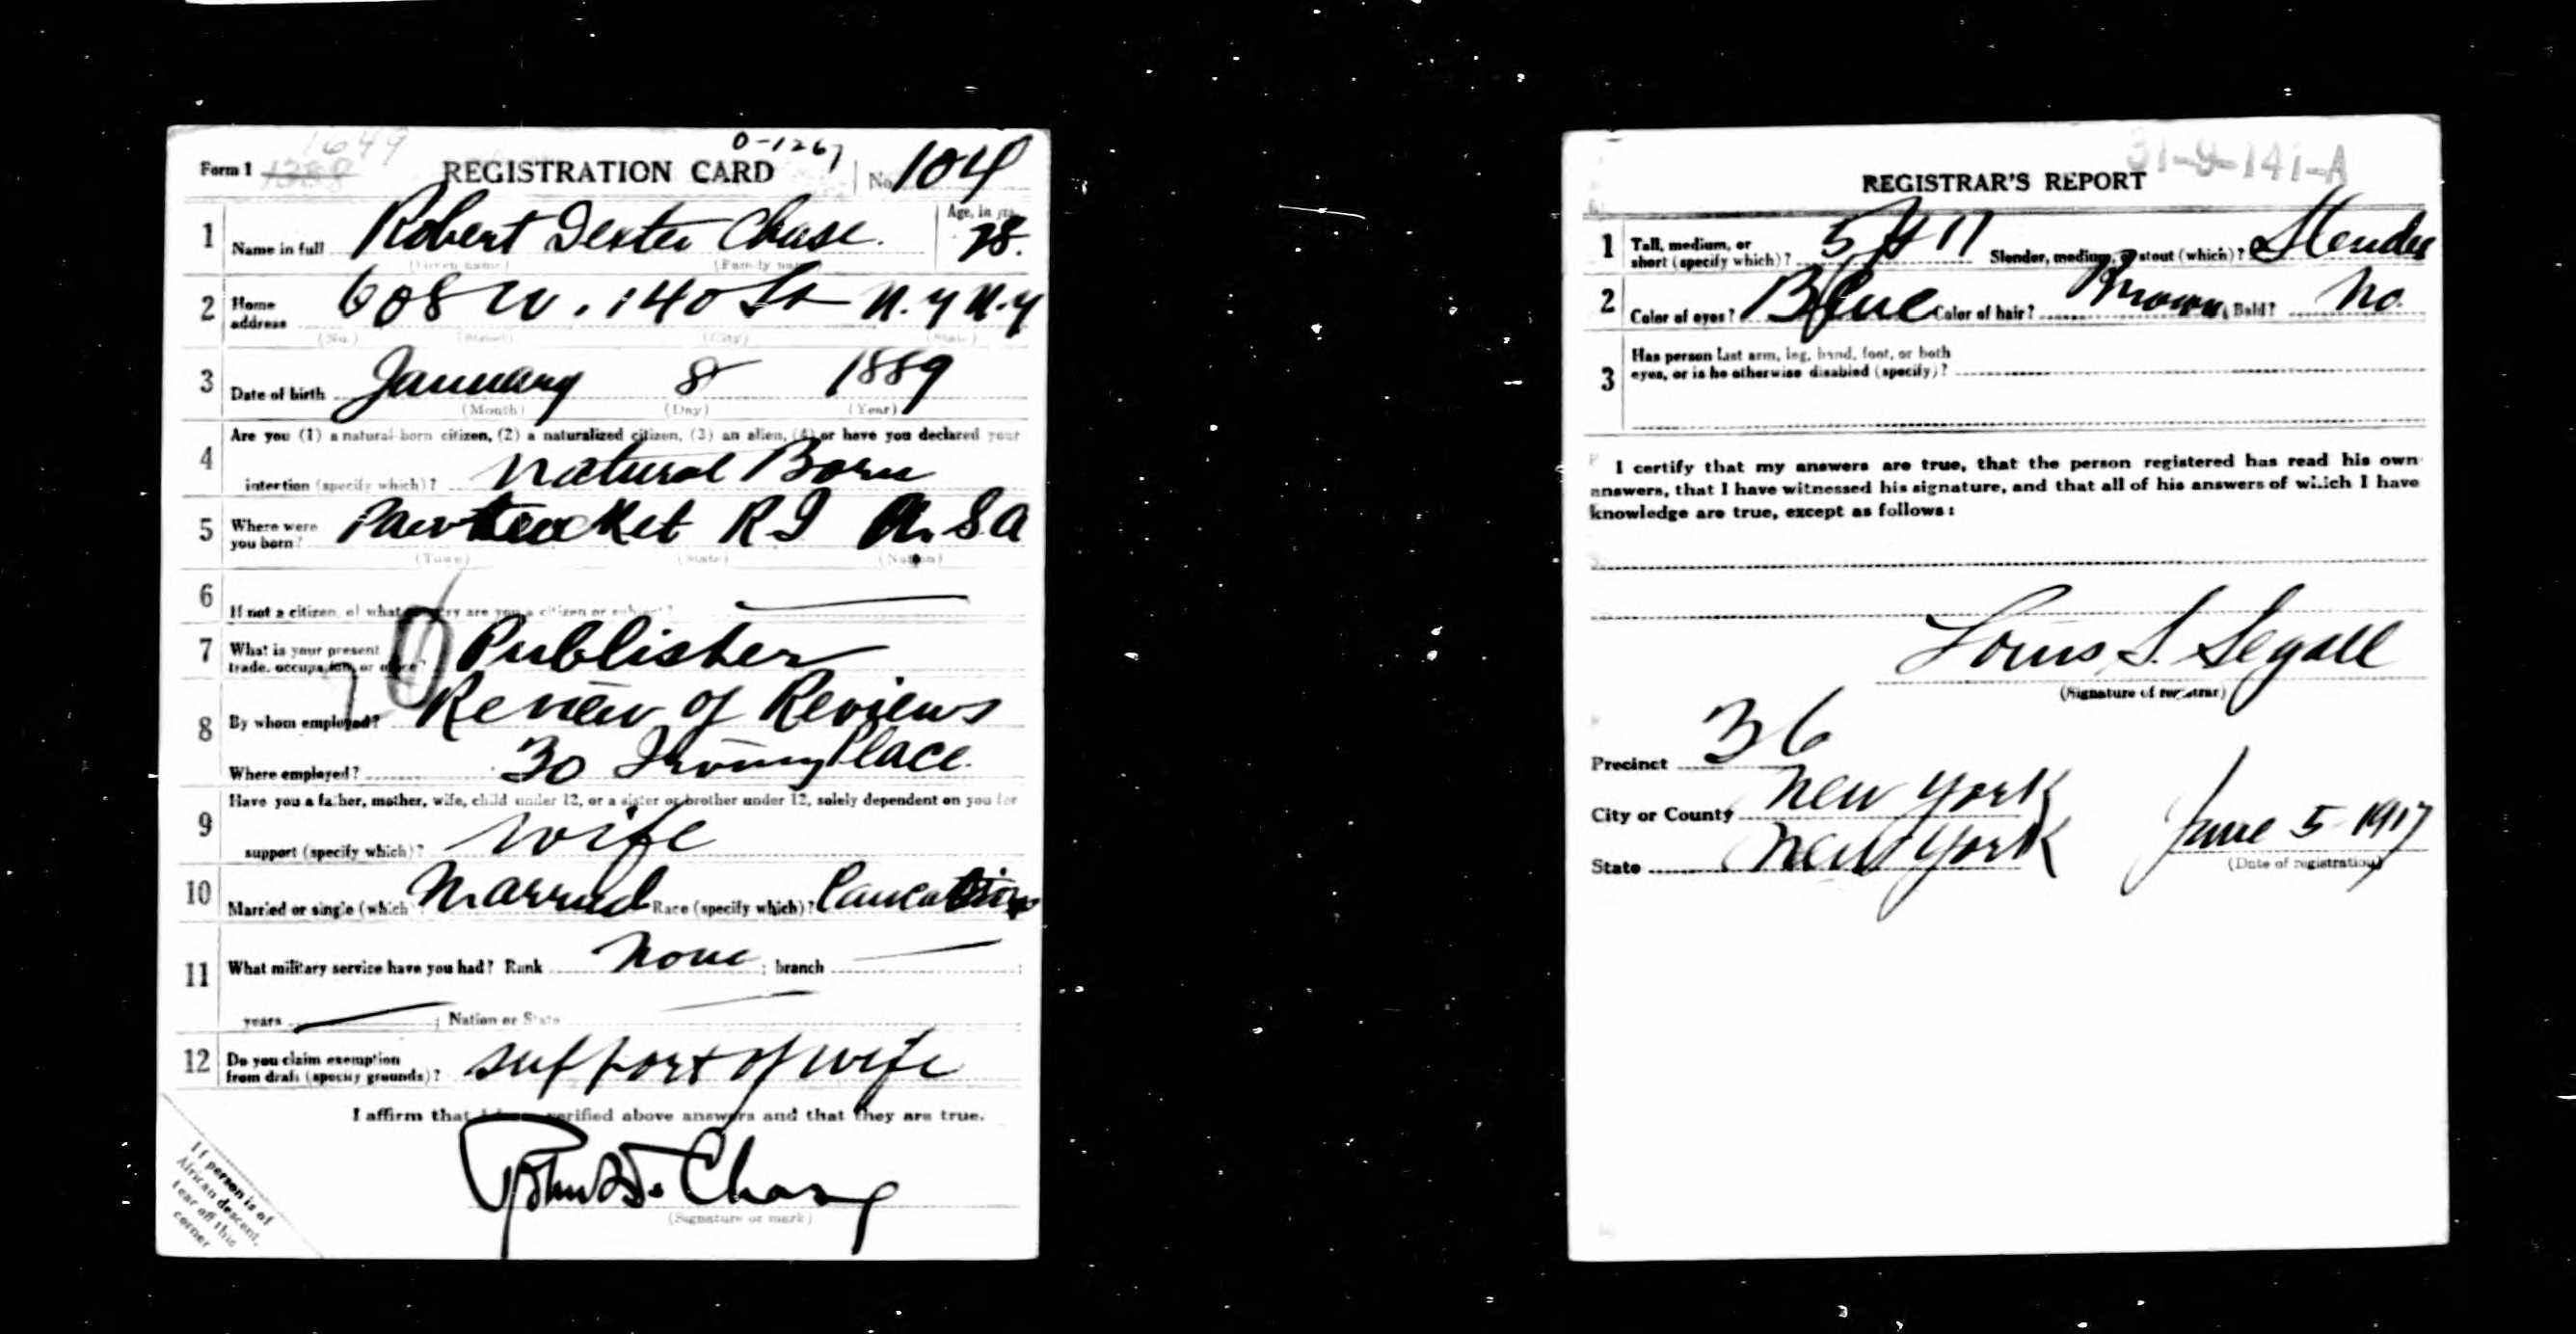 1649
Form 1 1388 REGISTRATION CARD 0-1267 No. 104
1 Name in full Robert Dexter Chase. Age, in yrs. 28.
(Given name) (Family name)
2 Home address 608 W. 140 St N.Y N.Y
(No.) (Street) (City) (State)
3 Date of birth January 8 1889
(Month) (Day) (Year)
Are you (1) a natural-born citizen, (2) a naturalized citizen, (3) an alien, (4) or have you declared your
4 intention (specify which)? Natural Born
5 Where were you born? Pawtucket R I U.S.A
(Town) (State) (Nation)
6 If not a citizen, of what country are you a citizen or subject?
7 What is your present trade, occupation, or office? Publisher
8 By whom employed? Review of Reviews
Where employed? 30 Irving Place.
Have you a father, mother, wife, child under 12, or a sister or brother under 12, solely dependent on you for
9 support (specify which)? Wife
10 Married or single (which Married Race (specify which)? Caucasian
11 What military service have you had? Rank None ; branch ;
years ; Nation or State
12 Do you claim exemption from draft (specify grounds)? Support of wife
I affirm that I have verified above answers and that they are true.
Chase
(Signature or mark)
If person is of
African descent,
tear off this
corner
31-9-141-A
REGISTRAR'S REPORT
1 Tall, medium, or short (specify which)? 5 ft 11 Slender, medium, or stout (which)? Slender
2 Color of eyes? Blue Color of hair? Brown Bald? No.
Has person lost arm, leg, hand, foot, or both
3 eyes, or is he otherwise disabled (specify)?
I certify that my answers are true, that the person registered has read his own
answers, that I have witnessed his signature, and that all of his answers of which I have
knowledge are true, except as follows:
Louis S. Segall
(Signature of registrar)
Precinct 36
City or County New York
State New York June 5 1917
(Date of registration)